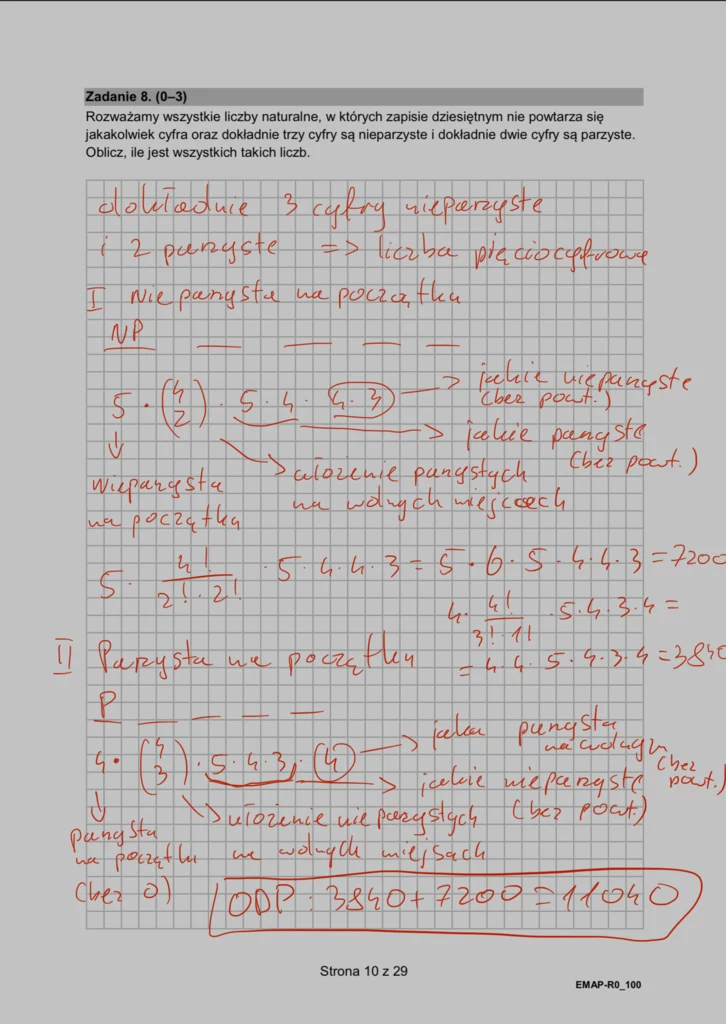 Zadanie 8. (0–3)
Rozważamy wszystkie liczby naturalne, w których zapisie dziesiętnym nie powtarza się
jakakolwiek cyfra oraz dokładnie trzy cyfry są nieparzyste i dokładnie dwie cyfry są parzyste.
Oblicz, ile jest wszystkich takich liczb.
dokładnie 3 cyfry nieparzyste
i 2 parzyste => liczba pięciocyfrowa
I Nieparzysta na początku
NP
5 · (4 2) · 5·4 · 4·3 → jakie nieparzyste
(bez powt.)
→ jakie parzyste
(bez powt.)
nieparzysta
na początku
ułożenie parzystych
na wolnych miejscach
5 · 4!/(2!·2!) · 5·4·4·3 = 5·6·5·4·4·3 = 7200
4 · 4!/(3!·1!) · 5·4·3·4 =
= 4·4·5·4·3·4 = 3840
II Parzysta na początku
P
4 · (4 3) · 5·4·3 · 4 → jaka parzysta
na wolnym
(bez powt.)
→ jakie nieparzyste
(bez powt.)
parzysta
na początku
(bez 0)
ułożenie nieparzystych
na wolnych miejsach
ODP: 3840 + 7200 = 11040
Strona 10 z 29
EMAP-R0_100